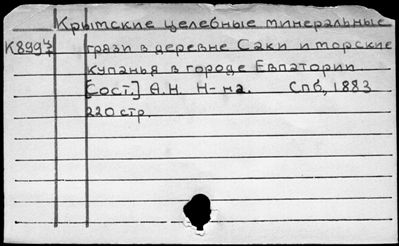 Крымские целебные минеральные
грязи в деревне Саки и морские
купанья в городе Евпатории.
[Сост.] А.Н. Н-на. Спб, 1883
220 стр.